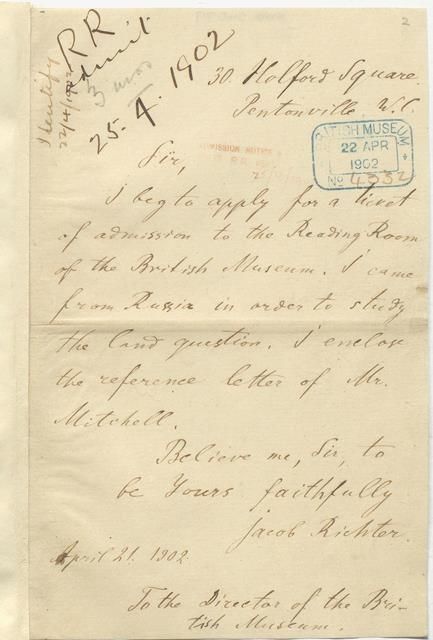 2
RR
admit
3 mos
25.4.1902
Identify
22/4/1902
30. Holford Square.
Pentonville W.C.
BRITISH MUSEUM
22 APR
1902
No 4332
ADMISSION NOTICE
Sir,
I beg to apply for a ticket
of admission to the Reading Room
of the British Museum. I came
from Russia in order to study
the land question. I enclose
the reference letter of Mr.
Mitchell.
Believe me, Sir, to
be Yours faithfully
Jacob Richter.
April 21. 1902.
To the Director of the Bri-
tish Museum.